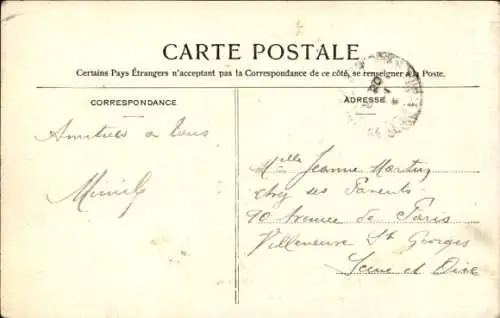 CARTE POSTALE
Certains Pays Étrangers n'acceptant pas la Correspondance de ce côté, se renseigner à la Poste.
CORRESPONDANCE
ADRESSE
Amitiés a tous
Melle Jeanne
chez ses Parents
90 Avenue de Paris
Villeneuve St Georges
Seine et Oise